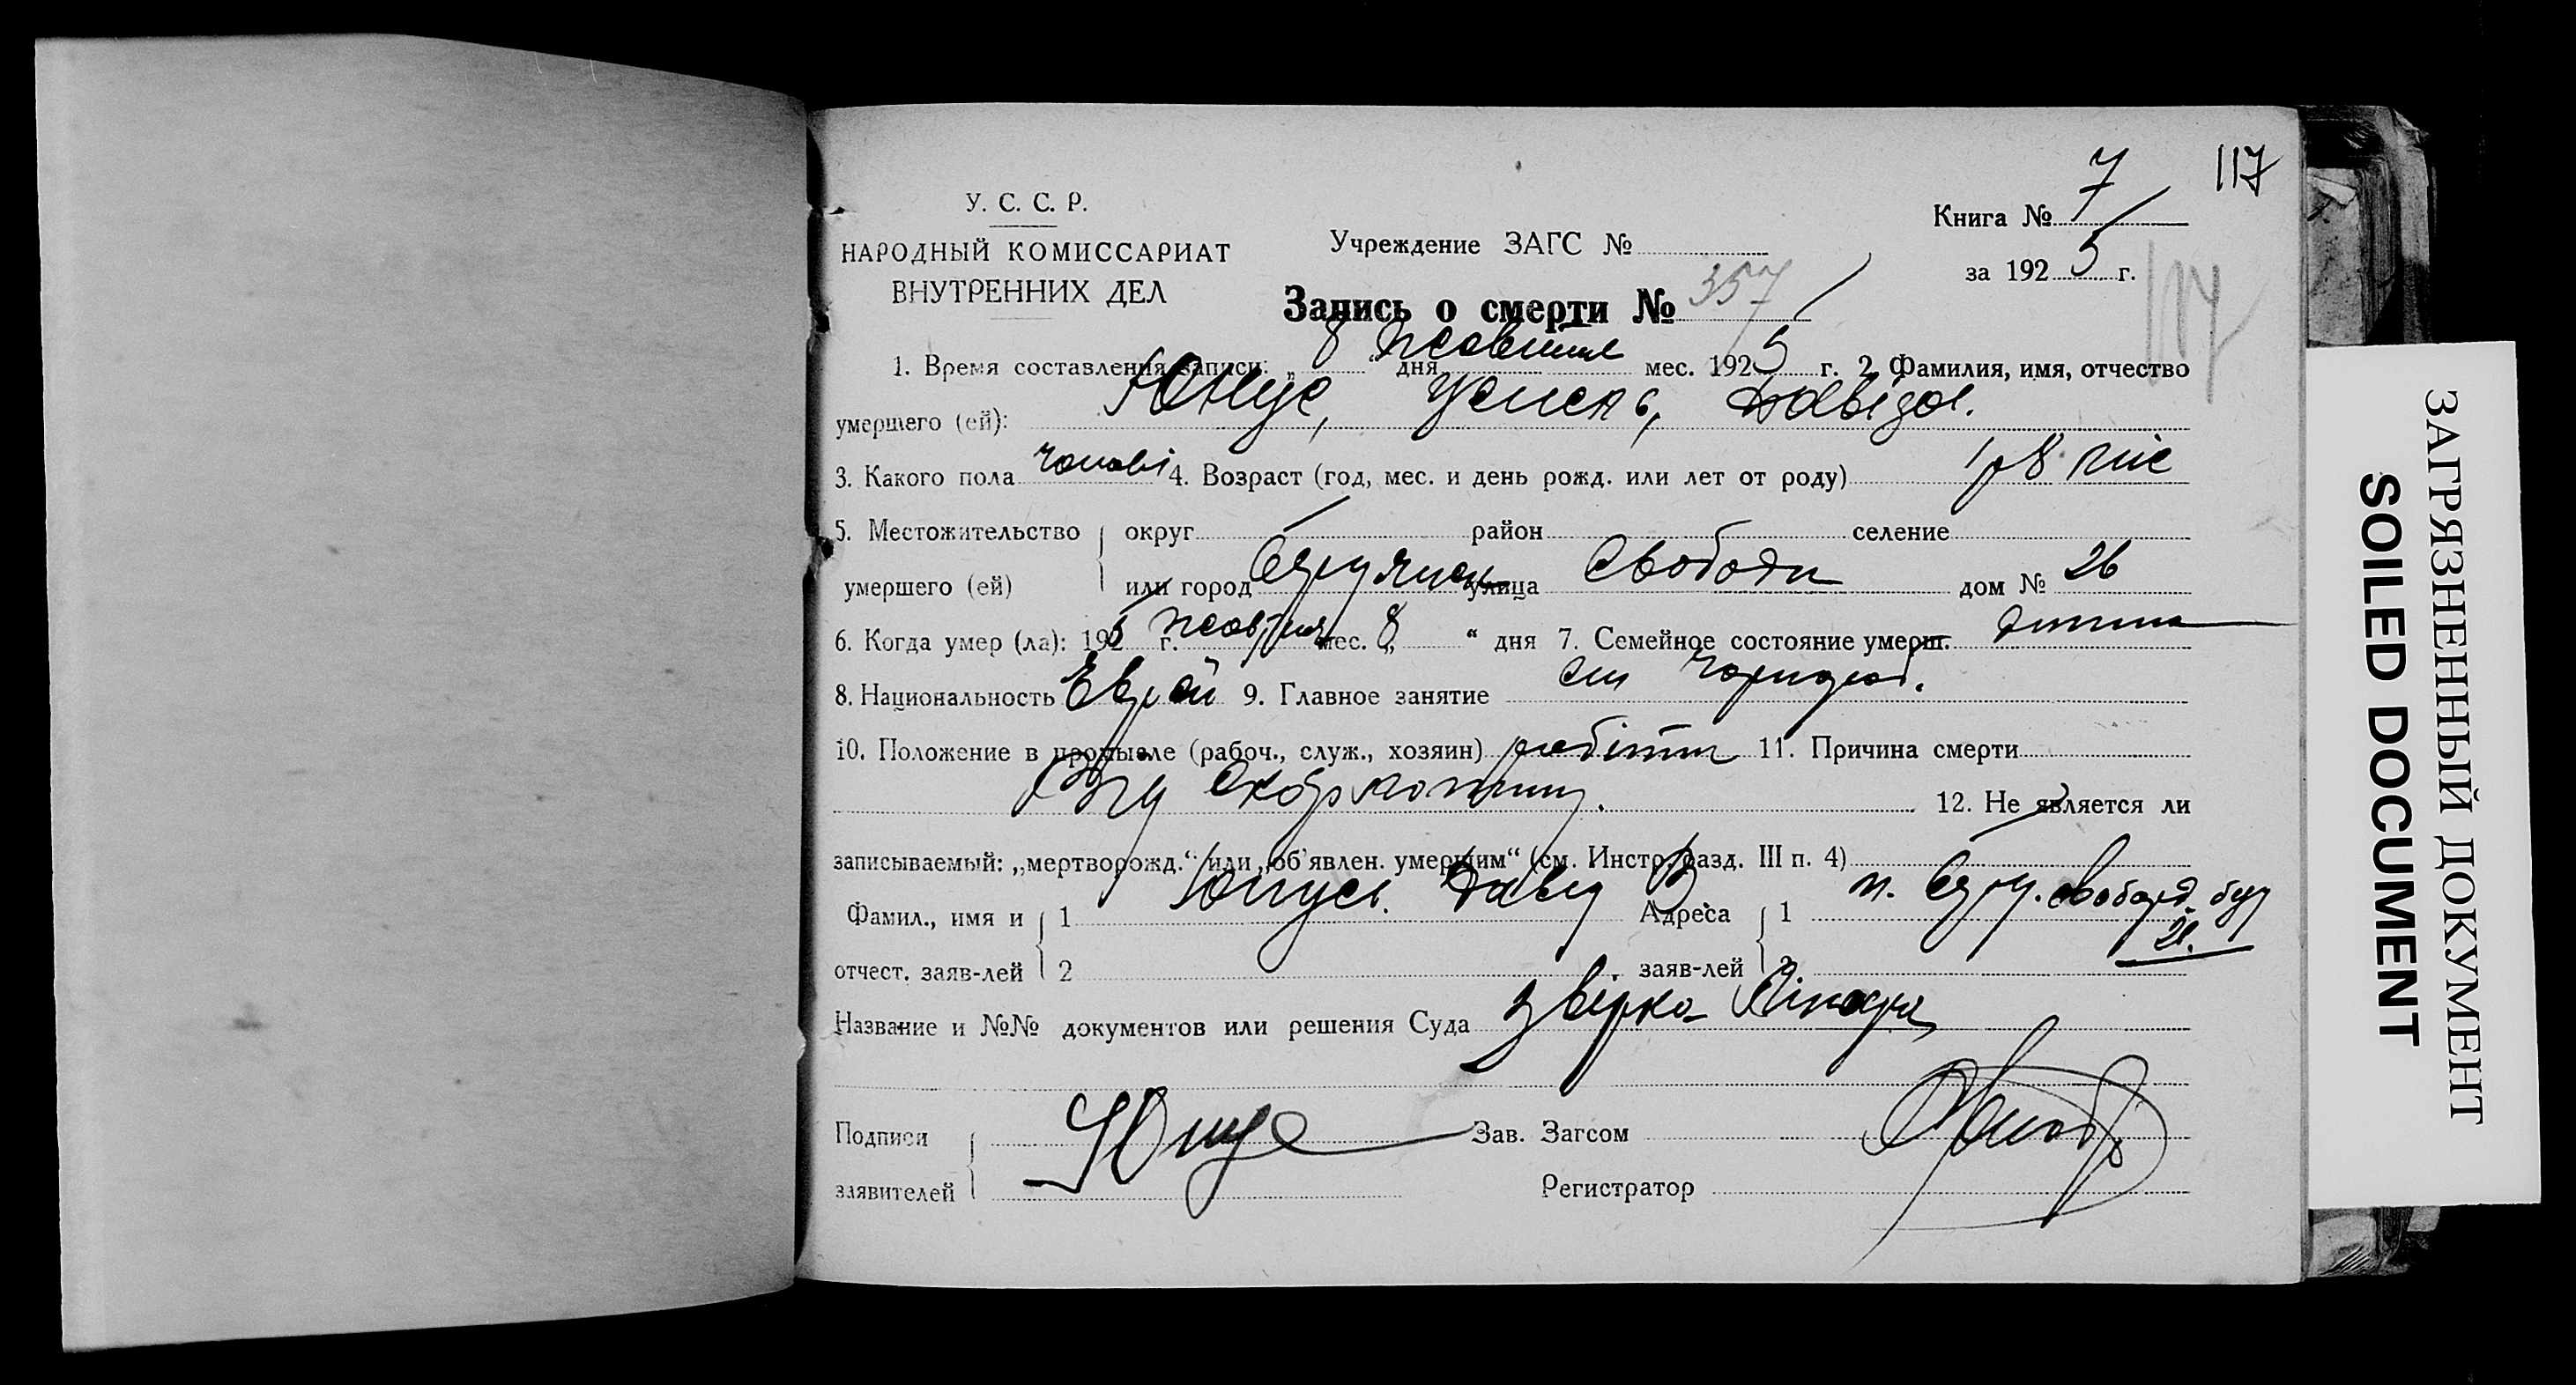 117
У. С. С. Р.
НАРОДНЫЙ КОМИССАРИАТ
ВНУТРЕННИХ ДЕЛ
Учреждение ЗАГС №
Книга № 7
за 1925 г.
117
Запись о смерти № 357
1. Время составления записи: „ 8 “ дня жовтня мес. 1925 г. 2. Фамилия, имя, отчество
умершего (ей): Юнус, Давідов.
3. Какого пола чолові 4. Возраст (год, мес. и день рожд. или лет от роду) 1 р 8 міс
5. Местожительство округ район селение
умершего (ей) или город улица Свободи дом № 26
6. Когда умер (ла): 1925 г. жовтня мес. „ 8 “ дня 7. Семейное состояние умерш. дитина
8. Национальность Еврей 9. Главное занятие син
10. Положение в промысле (рабоч., служ., хозяин) робітн 11. Причина смерти
Від
12. Не является ли
записываемый: „мертворожд.“ или „об'явлен. умершим“ (см. Инстр. разд. III п. 4)
Фамил., имя и 1 Юнус Давид В. Адреса 1 м. свободи буд
26.
отчест. заяв-лей 2 заяв-лей 2
Название и №№ документов или решения Суда Лікаря
Подписи Юнус Зав. Загсом
заявителей Регистратор
ЗАГРЯЗНЕННЫЙ ДОКУМЕНТ
SOILED DOCUMENT